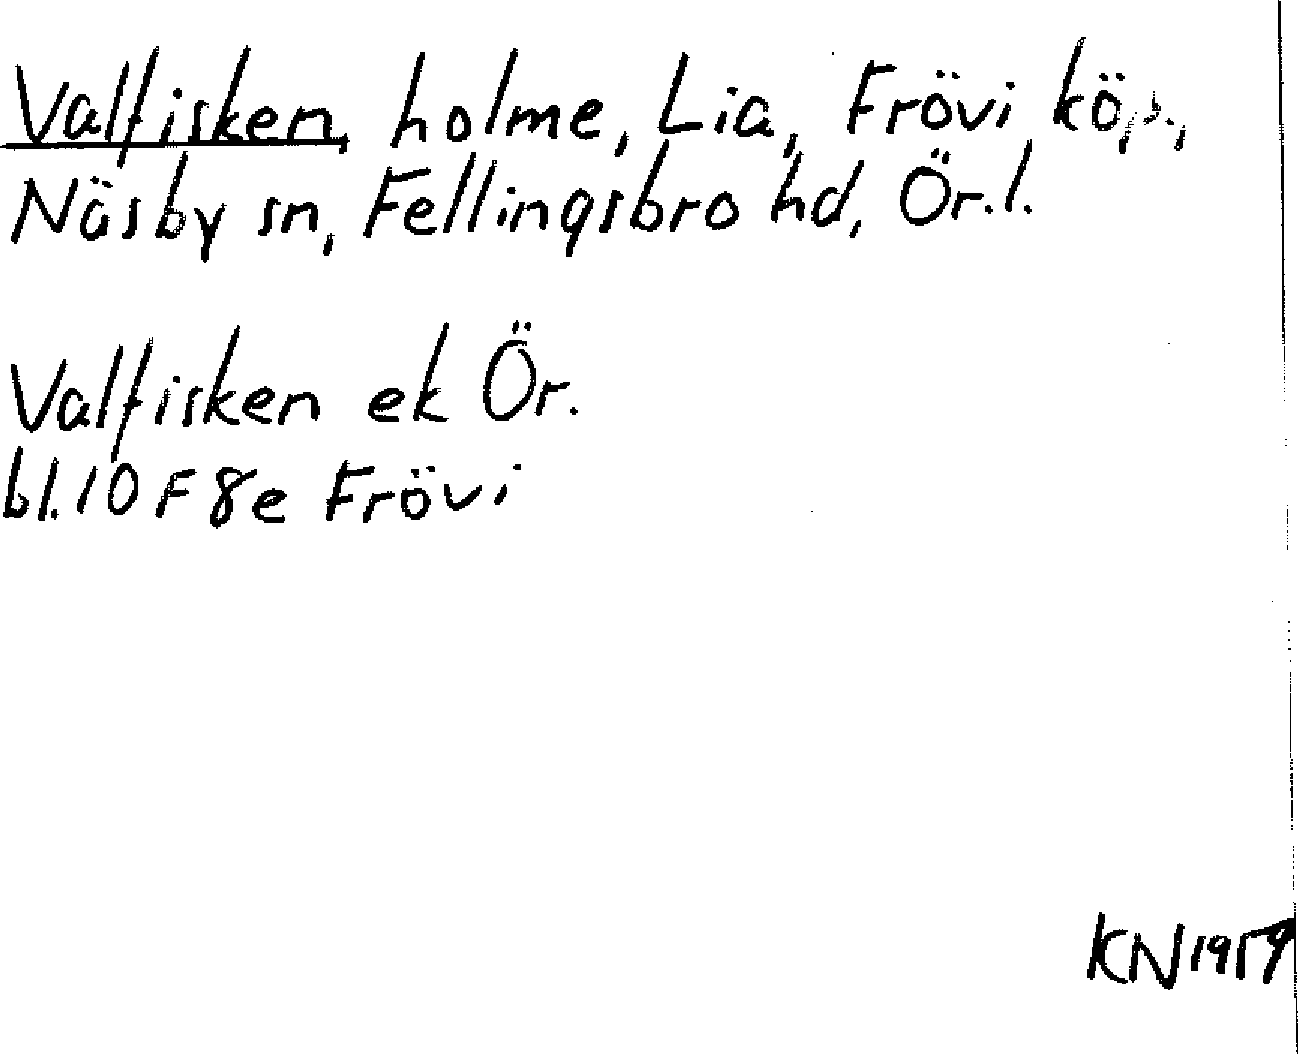 Valfisken, holme, Lia, Frövi kö.,
Näsby sn, Fellingsbro hd, Ör.l.
Valfisken ek Ör.
bl. 10 F 8e Frövi
KN 1959